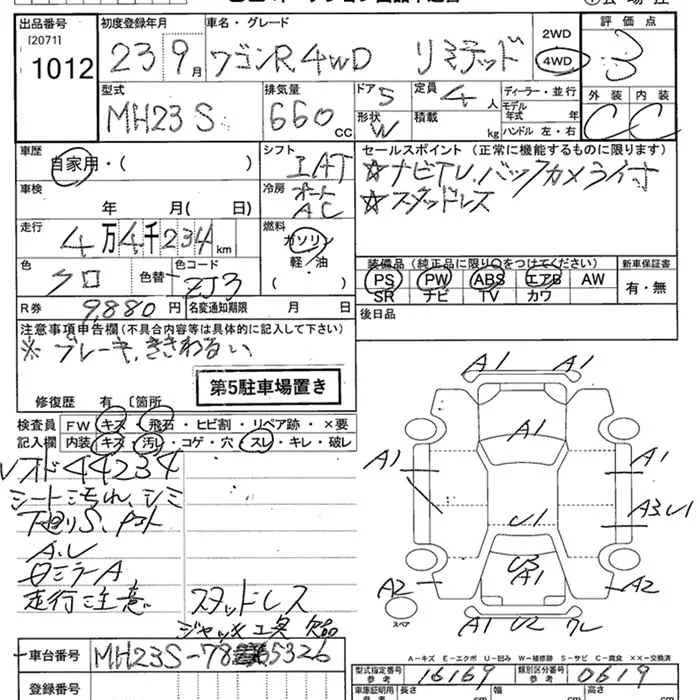 出品番号
I20711
1012
初度登録年月
23 9月
車名・グレード
ワゴンR 4WD リミテッド
2WD
4WD
評価点
3
型式
MH23S
排気量
660 CC
ドア 5
形状 W
定員 4人
積載 kg
ディーラー・並行
モデル年式 年
ハンドル 左・右
外装 内装
C C
車歴
自家用・( )
シフト
IAT
車検
年 月( 日)
冷房
オート
AC
走行
4万4千234km
燃料
ガソリン
軽/油
( )
色
クロ
色替
色コード
ZJ3
R券 9,880円
名変通知期限 月 日
セールスポイント (正常に機能するものに限ります)
☆ナビTV.バックカメラ付
☆スタッドレス
装備品(純正品に限り○をつけてください)
新車保証書
PS PW ABS エアB AW
SR ナビ TV カワ
有・無
後日品
注意事項申告欄(不具合内容等は具体的に記入して下さい)
※ブレーキ、ききわるい
第5駐車場置き
修復歴 有〔箇所
検査員 FW キズ・飛石・ヒビ割・リペア跡・×要
記入欄 内装 キズ・汚レ・コゲ・穴・スレ・キレ・破レ
44234
シート汚れ、シミ
A.U
ミラーA
走行注意。
スタッドレス
ジャッキ工具欠品
A1 A1
A1
A1 A1
A3 U1
U1
A1
A2 A2
スペア
A1 U2
A-キズ E-エクボ U-凹み W-補修跡 S-サビ C-腐食 ××-交換済
車台番号 MH23S-78 65326
型式指定番号 参考 16167
類別区分番号 参考 0619
登録番号
車庫証明用 参考
長さ cm
幅 cm
高さ cm